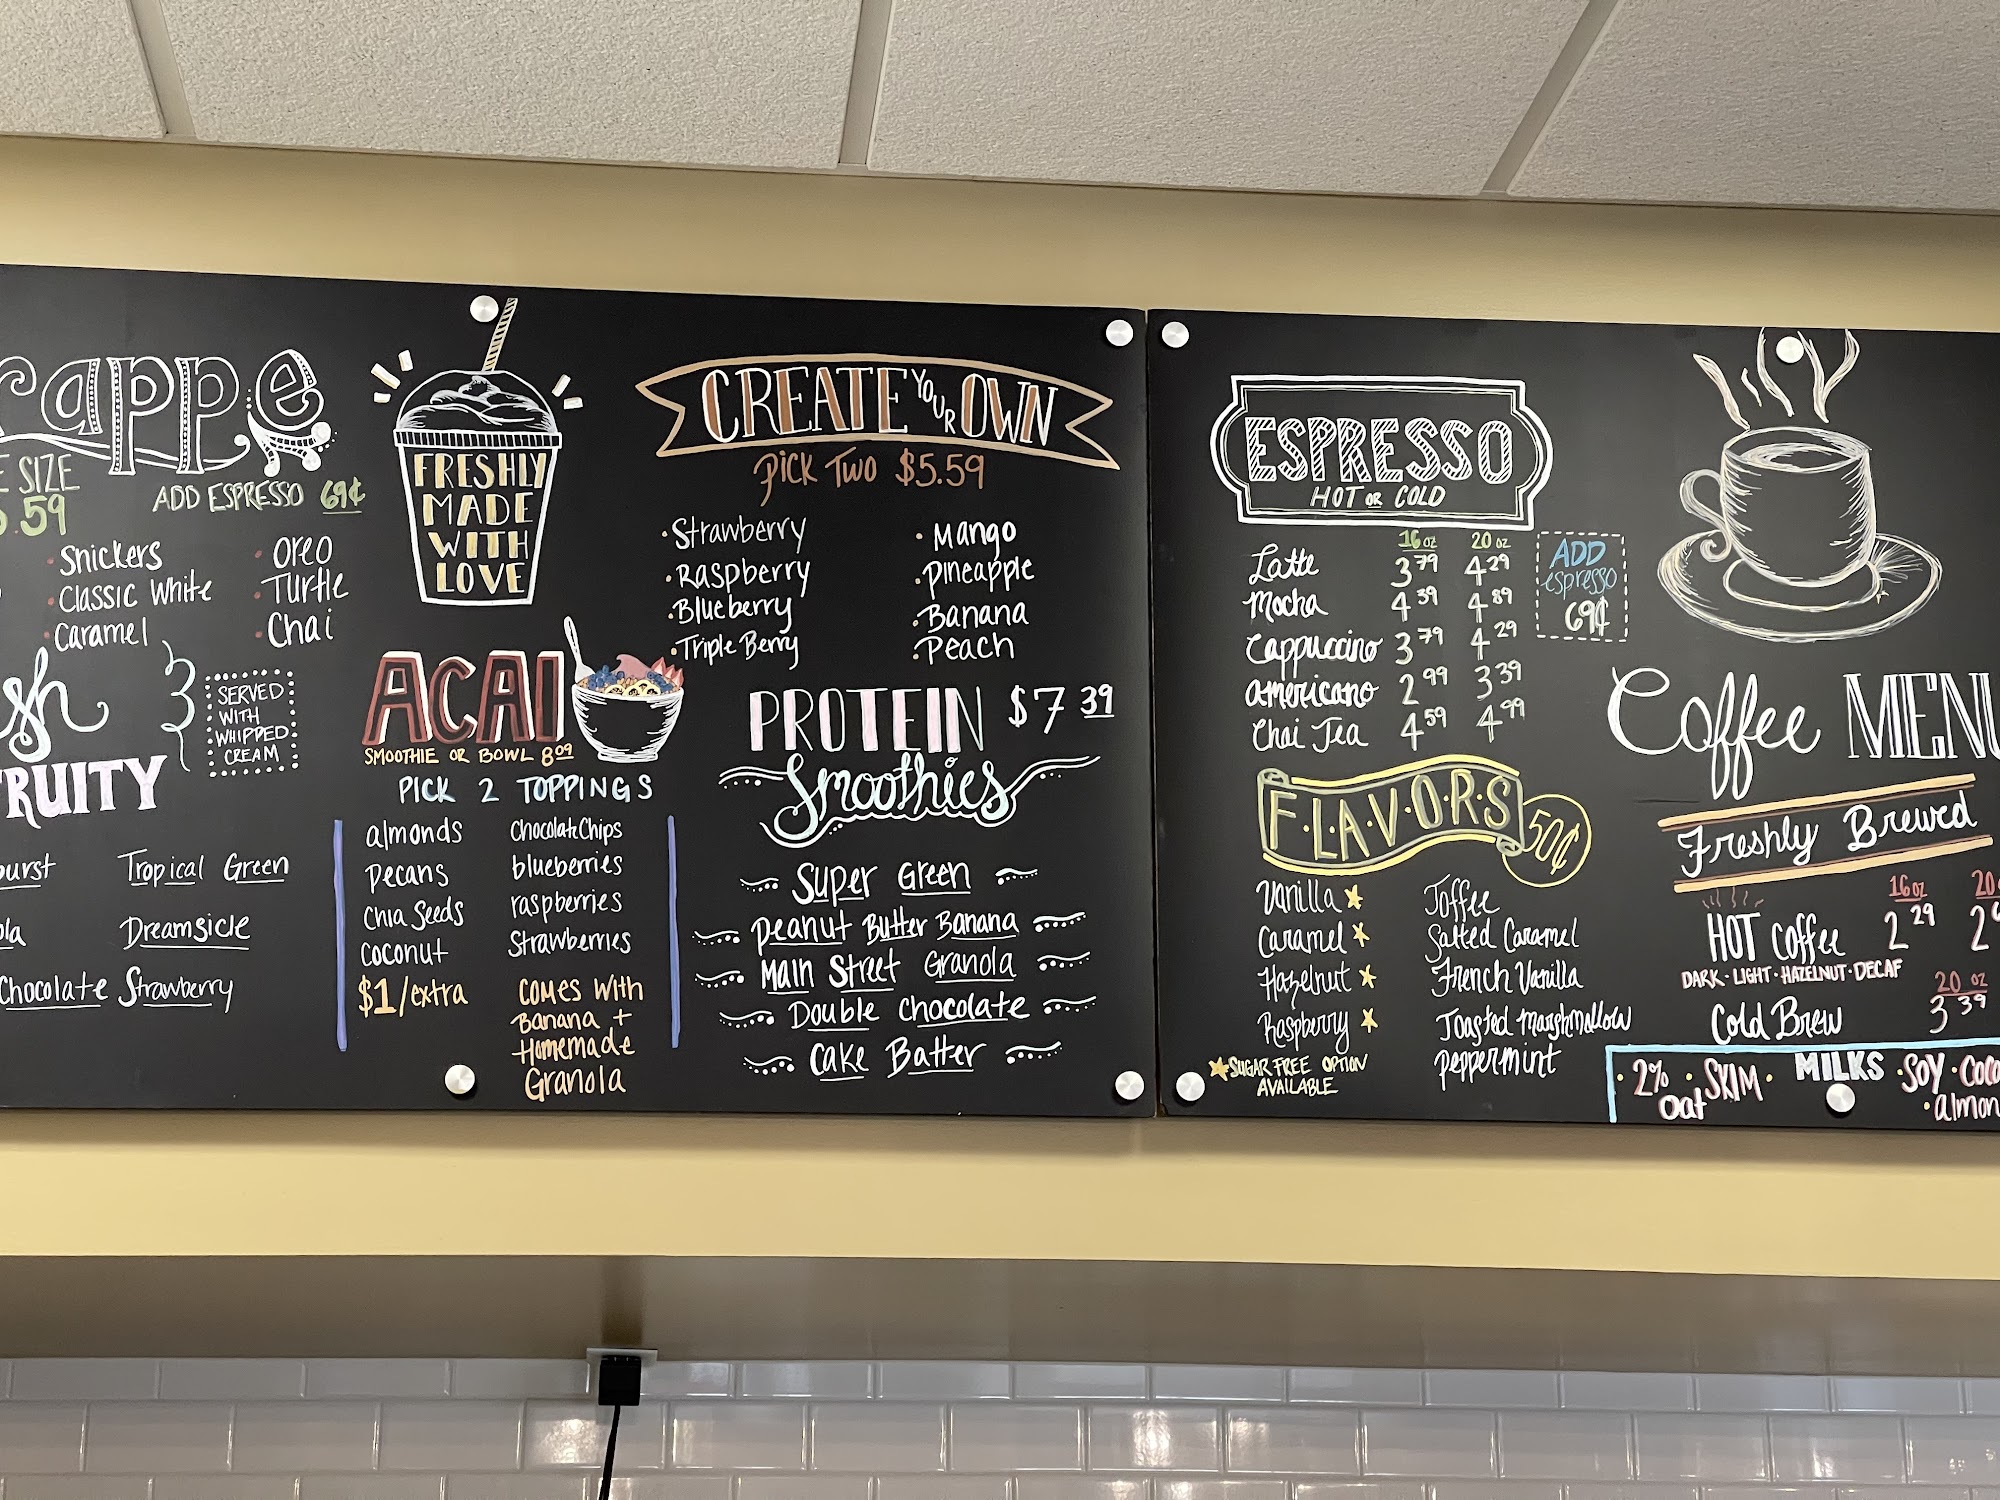 rappe
E SIZE
.59
ADD ESPRESSO 69¢
· Snickers
· Classic White
· Caramel
· Oreo
· Turtle
· Chai
sh
RUITY
SERVED
WITH
WHIPPED
CREAM
urst
Tropical Green
la
Dreamsicle
Chocolate Strawberry
FRESHLY
MADE
WITH
LOVE
ACAI
SMOOTHIE OR BOWL 8.09
PICK 2 TOPPINGS
almonds
pecans
Chia Seeds
coconut
$1/extra
Chocolate Chips
blueberries
raspberries
Strawberries
COMES WITH
Banana +
Homemade
Granola
CREATE YOUR OWN
PICK TWO $5.59
· Strawberry
· Raspberry
· Blueberry
· Triple Berry
· Mango
· Pineapple
· Banana
· Peach
PROTEIN $7.39
Smoothies
Super Green
Peanut Butter Banana
Main Street Granola
Double Chocolate
Cake Batter
ESPRESSO
HOT OR COLD
16 oz 20 oz
Latte 3.79 4.29
Mocha 4.39 4.89
Cappuccino 3.79 4.29
Americano 2.99 3.39
Chai Tea 4.59 4.99
ADD
espresso
69¢
F·L·A·V·O·R·S 50¢
Vanilla ★
Caramel ★
Hazelnut ★
Raspberry ★
★ SUGAR FREE OPTION
AVAILABLE
Toffee
Salted Caramel
French Vanilla
Toasted Marshmallow
Peppermint
Coffee MENU
Freshly Brewed
16 oz 20
HOT Coffee 2.29 2
DARK · LIGHT · HAZELNUT · DECAF
20 oz
Cold Brew 3.39
MILKS
· 2% · SKIM ·
Oat
· SOY · COCO
· almon